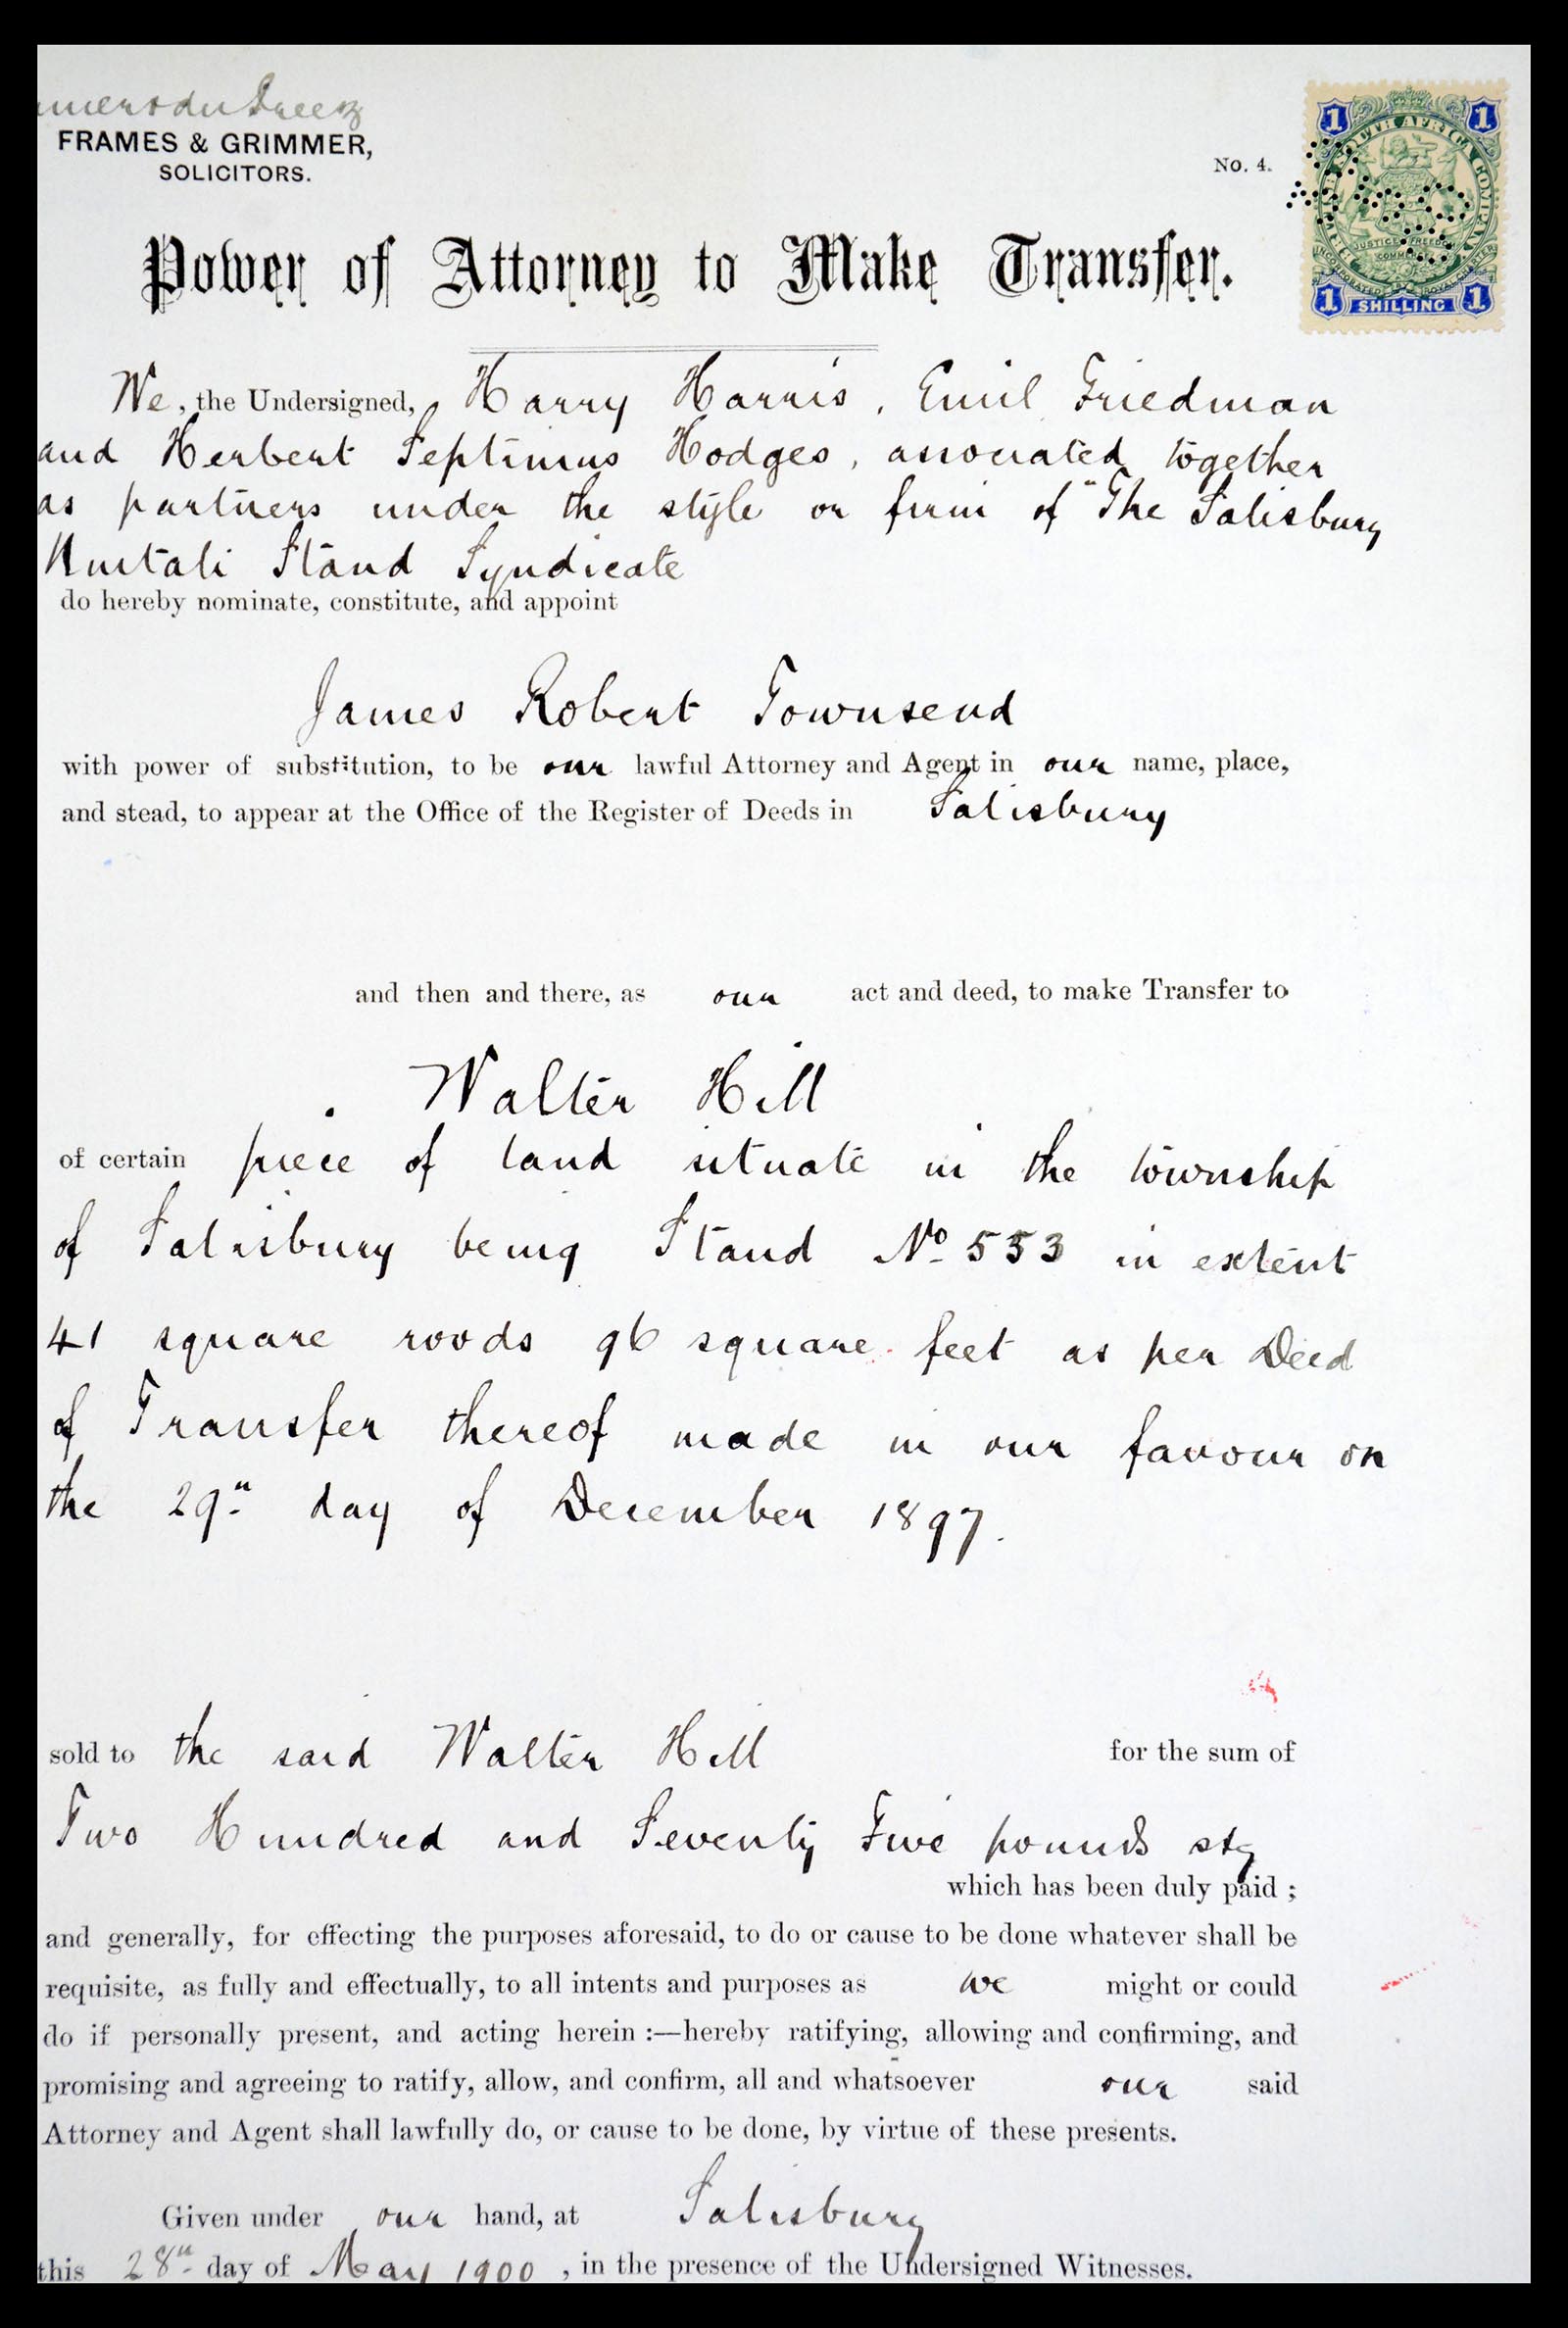 FRAMES & GRIMMER,
SOLICITORS.
No. 4.
1 1
BRITISH SOUTH AFRICA COMPANY
JUSTICE FREEDOM
COMMERCE
INCORPORATED BY ROYAL CHARTER
1 SHILLING 1
Power of Attorney to Make Transfer.
We, the Undersigned, Harry Harris, Emil Friedman
and Herbert Septimus Hodges, associated together
as partners under the style or firm of "The Salisbury
Umtali Stand Syndicate
do hereby nominate, constitute, and appoint
James Robert Townsend
with power of substitution, to be our lawful Attorney and Agent in our name, place,
and stead, to appear at the Office of the Register of Deeds in Salisbury
and then and there, as our act and deed, to make Transfer to
Walter Hill
of certain piece of land situate in the township
of Salisbury being Stand No 553 in extent
41 square roods 96 square feet as per Deed
of Transfer thereof made in our favour on
the 29th day of December 1897.
sold to the said Walter Hill for the sum of
Two Hundred and Seventy Five pounds stg
which has been duly paid ;
and generally, for effecting the purposes aforesaid, to do or cause to be done whatever shall be
requisite, as fully and effectually, to all intents and purposes as we might or could
do if personally present, and acting herein :—hereby ratifying, allowing and confirming, and
promising and agreeing to ratify, allow, and confirm, all and whatsoever our said
Attorney and Agent shall lawfully do, or cause to be done, by virtue of these presents.
Given under our hand, at Salisbury
this 28th day of May 1900, in the presence of the Undersigned Witnesses.